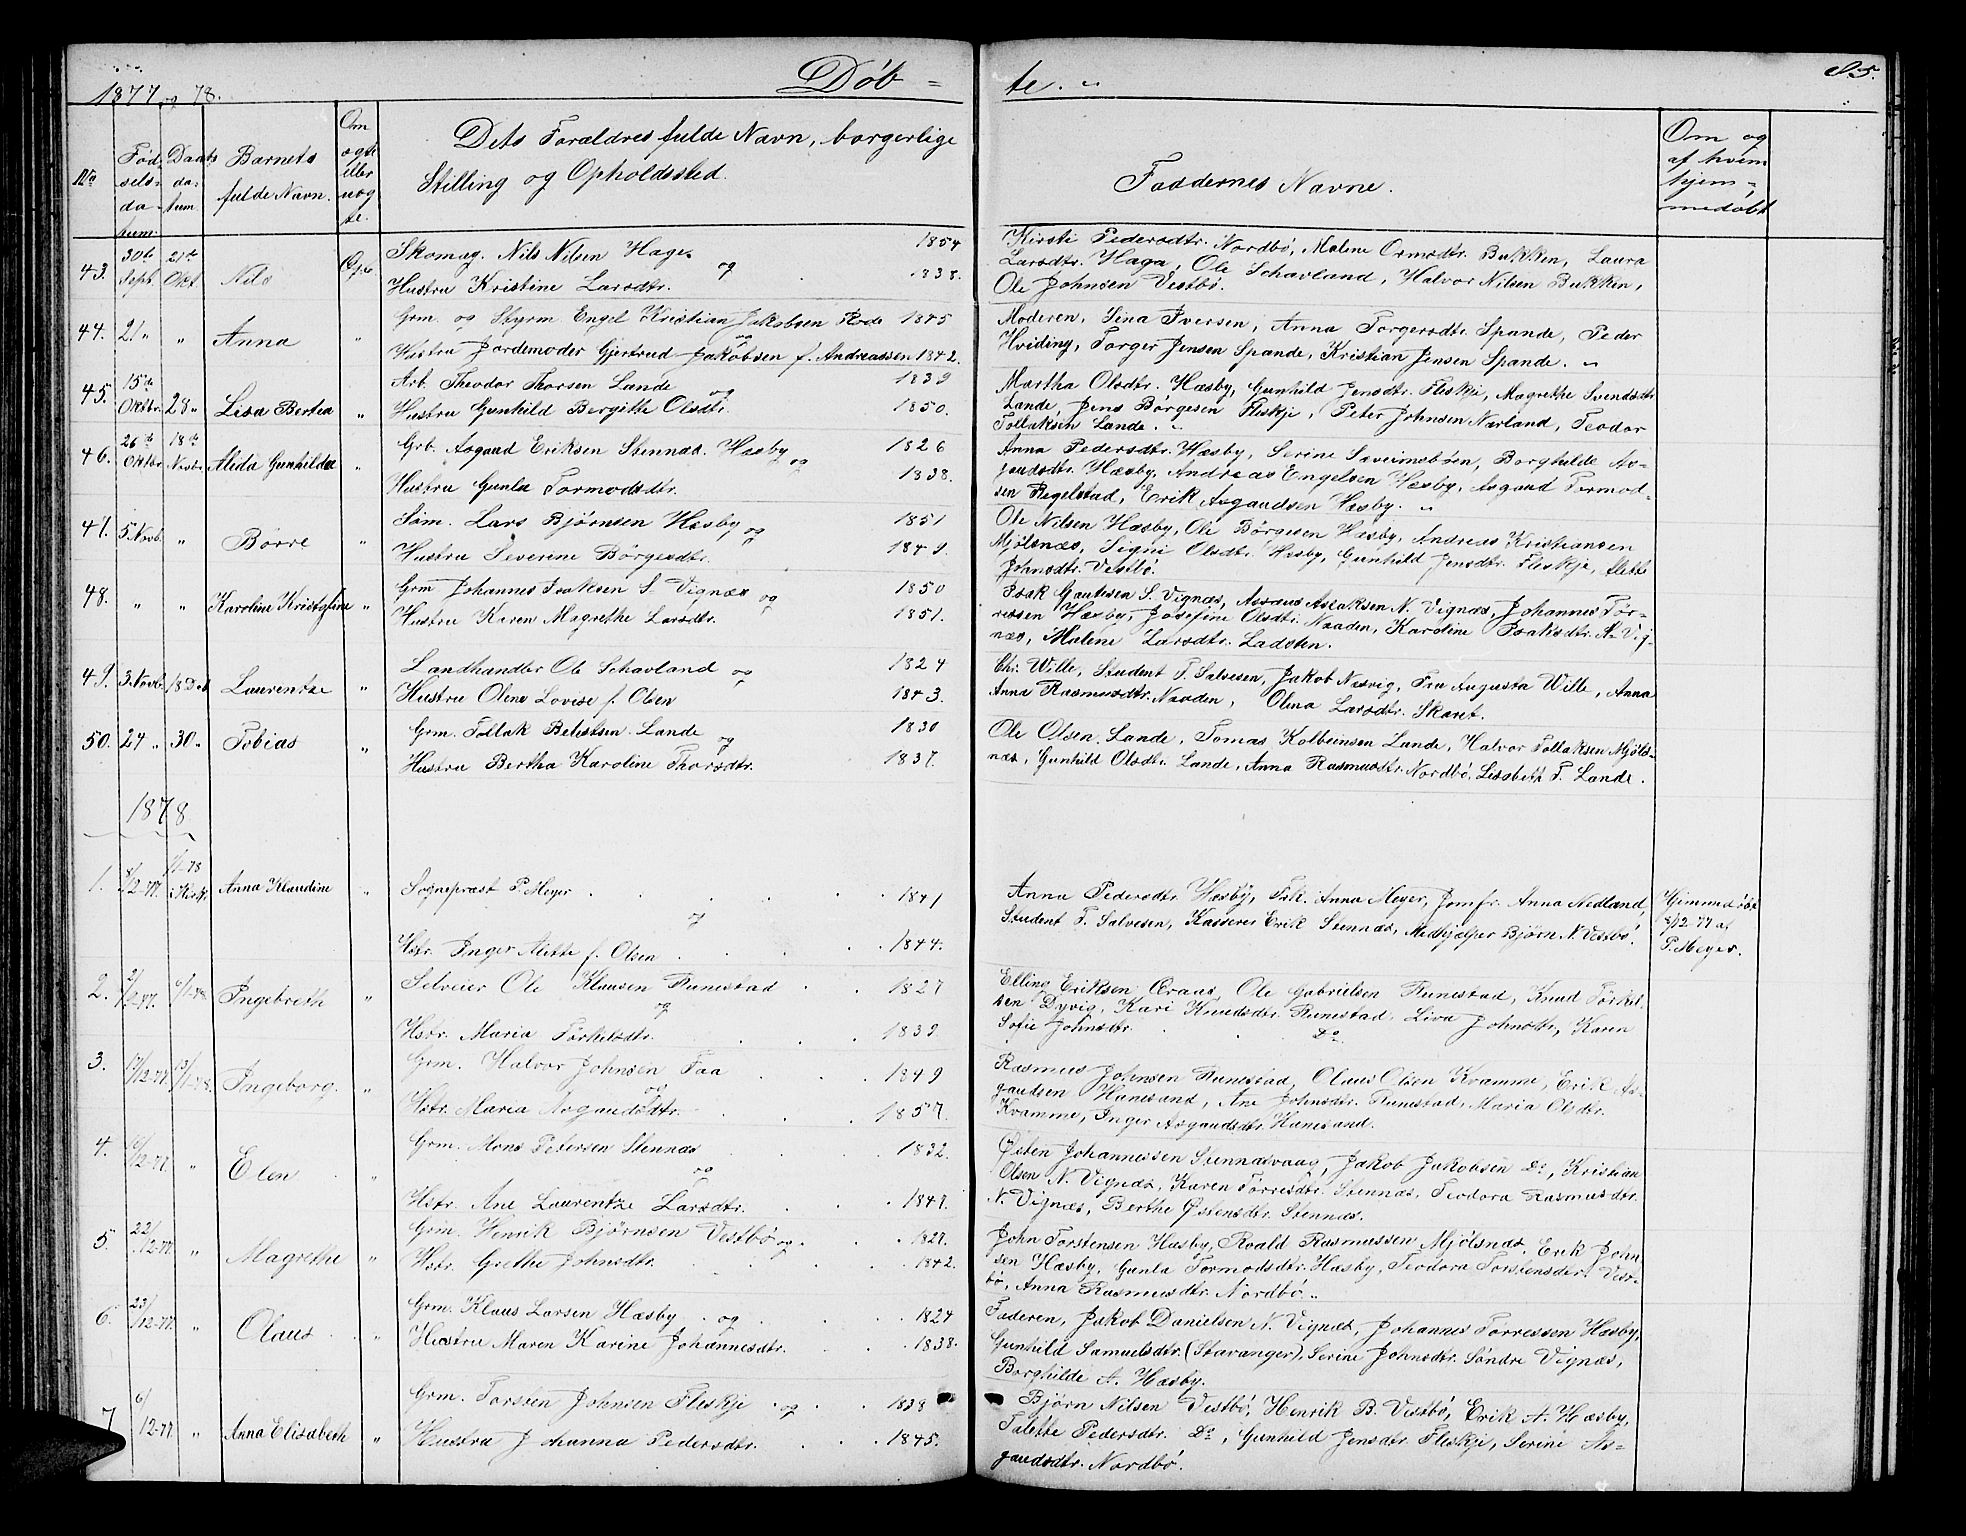 1877 og 78.
Døb = te. "
85.
No
Fødselsdatum.
Daabsdatum
Barnets fulde Navn.
Om ægte eller uægte.
Dets Forældres fulde Navn, borgerlige
Stilling og Opholdssted.
Faddernes Navne.
Om og af hvem hjemmedøbt
43. 30te Septb. 21de Okt. Nils Egte Skomag. Nils Nilsen Haga og 1854
Hustru Kristine Larsdtr. 1838.
Kirsti Pedersdtr. Nordbø, Malene Ormsdtr. Bukken, Laura
Larsdtr. Haga, Ole Schavland, Halvor Nilsen Bukken,
Ole Johnsen Vestbø.
44. 21 " " Anna " Grm. og Styrm Engel Kristian Jakobsen Rode og 1845
Hustru Jordemoder Gjertrud Jakobsen f. Andreassen 1842.
Moderen, Sina Iversen, Anna Torgersdtr. Spande, Peder
Hviding, Torger Jensen Spande, Kristian Jensen Spande. "
45. 15de Oktbr. 28 " Lisa Bertea " Arb. Theodor Thorsen Lande og 1839
Hustru Gunhild Bergithe Olsdtr. 1850.
Martha Olsdtr. Hæsby, Gunhild Jensdtr. Fleskje, Magrethe Svendsdtr
Lande, Jens Børgesen Fleskje, Peter Johnsen Nærland, Teodor
Tollaksen Lande. "
46. 26de Oktbr 18de Novbr Alida Gunhilda " Grb. Asgaud Eriksen Stennæs. Hæsby og 1826
Hustru Gunla Tormodsdtr. 1838.
Anna Pedersdtr. Hæsby, Serine Sæveimsbøen, Borghilde As-
gaudsdtr. Hæsby, Andreas Engelsen Hæsby, Asgaud Tormod-
sen Regelstad, Erik Asgaudsen Hæsby. "
47. 5 Novb. " Børre " Søm. Lars Bjørnsen Hæsby og 1851
Hustru Severine Børgesdtr. 1849.
Ole Nilsen Hæsby, Ole Børgesen Hæsby, Andreas Kristiansen
Mjølsnæs, Signi Olsdtr. Hæsby, Gunhild Jensdtr. Fleskje, Alette
Johnsdtr. Vestbø.
48. " " Karoline Kristofine " Grm Johannes Isaksen S. Vignæs og 1850
Hustru Karen Magrethe Larsdtr. 1851.
Isak Gautesen S. Vignæs, Asraus Aslaksen N. Vignæs, Johannes Tør-
ressen Hæsby, Josefine Olsdtr. Naaden, Karoline Isaksdtr. N. Vig-
næs, Malene Larsdtr. Ladsten.
49. 3 Novb. 18 Deb Laurentze " Landhandler Ole Schavland og 1824
Hustru Olene Lovise f. Olsen 1843.
Chr. Wille, Student T. Salvesen, Jakob Næsvig, Fru Augusta Wille, Anna
Anna Rasmusdtr. Naaden, Olina Larsdtr. Skaret.
50. 24 " 30 " Tobias " Grm. Tollak Belestsen Lande og 1830
Hustru Bertha Karoline Thorsdtr. 1837.
Ole Olsen Lande, Tomas Kolbeinsen Lande, Halvor Tollaksen Mjøls-
næs, Gunhild Olsdtr. Lande, Anna Rasmusdtr. Nordbø, Lisabeth T. Lande.
1878
1. 8/12-77. 1/1-78 i Kirk. Anna Klaudine " Sognepræst P. Meyer og 1841
Hstr. Inger Alette f. Olsen 1844.
Anna Pedersdtr. Hæsby, Frk. Anna Meyer, Jomfr. Anna Nedland,
Student T. Salvesen, Kasserer Erik Stennæs, Medhjælper Bjørn N. Vestbø.
Hjemmedøbt
8/12-77 af
P. Meyer.
2. 2/12-77. 6/1-78. Ingebreth " Selveier Ole Klausen Funestad og 1827
Hstr. Maria Tørkelsdtr. 1839
Elling Eriksen Øraas, Ole Gabrielsen Funestad, Knud Tørkel-
sen Dyvig, Kari Knudsdtr. Funestad, Liva Johnsdtr, Karen
Sofie Johnsdtr. Do.
3. 17/12-77. 13/1-78. Ingeborg. " Grm. Halvor Johnsen Faa og 1849
Hstr. Maria Asgaudsdtr. 1857.
Rasmus Johnsen Funestad, Olaus Olsen Kvamme, Erik As-
gaudsen Hanesand, Ane Johnsdtr. Funestad, Maria Olsdtr.
Kvamme, Inger Asgaudsdtr. Hanesand.
4. 16/12-77. " Elen " Grm. Mons Petersen Stennæs og 1832.
Hstr. Ane Laurentze Larsdtr. 1847.
Østen Johannessen Stennæsvaag, Jakob Jakobsen Do, Kristian
Olsen N. Vignæs, Karen Tørresdtr. Stennæs, Teodora Rasmusdtr.
N. Vignæs, Berthe Østensdtr. Stennæs.
5. 22/12-77. " Magrethe " Grm. Henrik Bjørnsen Vestbø og 1827.
Hstr. Grethe Johnsdtr. 1842.
John Torstensen Hæsby, Roald Rasmussen Mjølsnæs, Erik John-
sen Hæsby, Gunla Tormodsdtr. Hæsby, Teodora Torstensdtr. Vest-
bø, Anna Rasmusdtr Nordbø. "
6. 23/12-77. " Olaus " Grm. Klaus Larsen Hæsby og 1824
Hustru Maren Karine Johannesdtr. 1838.
Faderen, Jakob Danielsen N. Vignæs, Johannes Tørressen Hæsby,
Gunhild Samuelsdtr. (Stavanger), Serine Johnsdtr. Søndre Vignæs,
Borghilde A. Hæsby.
7 6/12-77. " Anna Elisabeth " Grm. Torsten Johnsen Fleskje og 1838
Hustru Johanna Pedersdtr. 1845.
Bjørn Nilsen Vestbø, Henrik B. Vestbø, Erik A. Hæsby,
Talette Pedersdtr. Do, Gunhild Jensdtr. Fleskje, Serine As-
gaudsdtr. Nordbø.